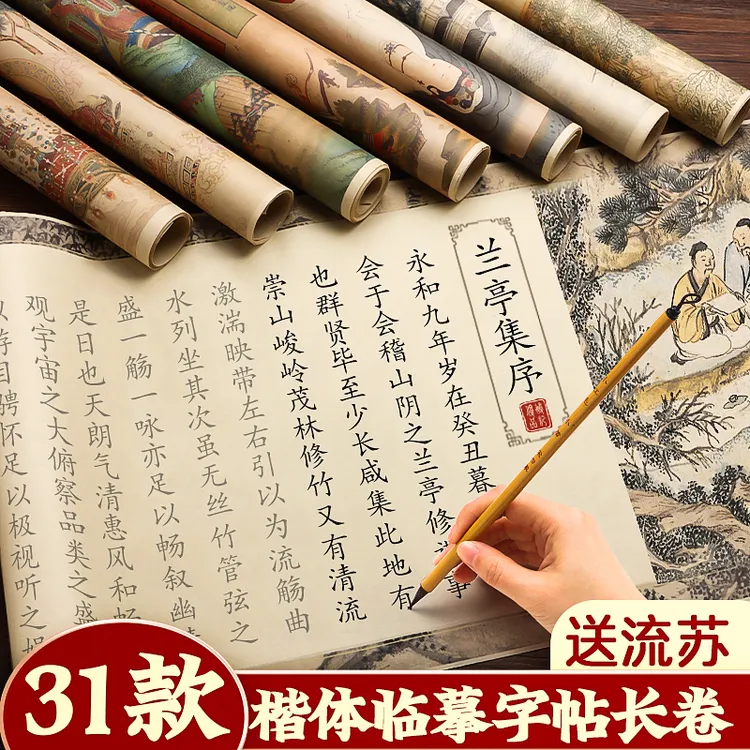 兰亭集序
永和九年岁在癸丑暮
会于会稽山阴之兰亭修事
也群贤毕至少长咸集此地有
崇山峻岭茂林修竹又有清流
激湍映带左右引以为流觞曲
水列坐其次虽无丝竹管弦之
盛一觞一咏亦足以畅叙幽
是日也天朗气清惠风和畅
观宇宙之大俯察品类之盛
以游目骋怀足以极视听之娱
送流苏
31款
楷体临摹字帖长卷